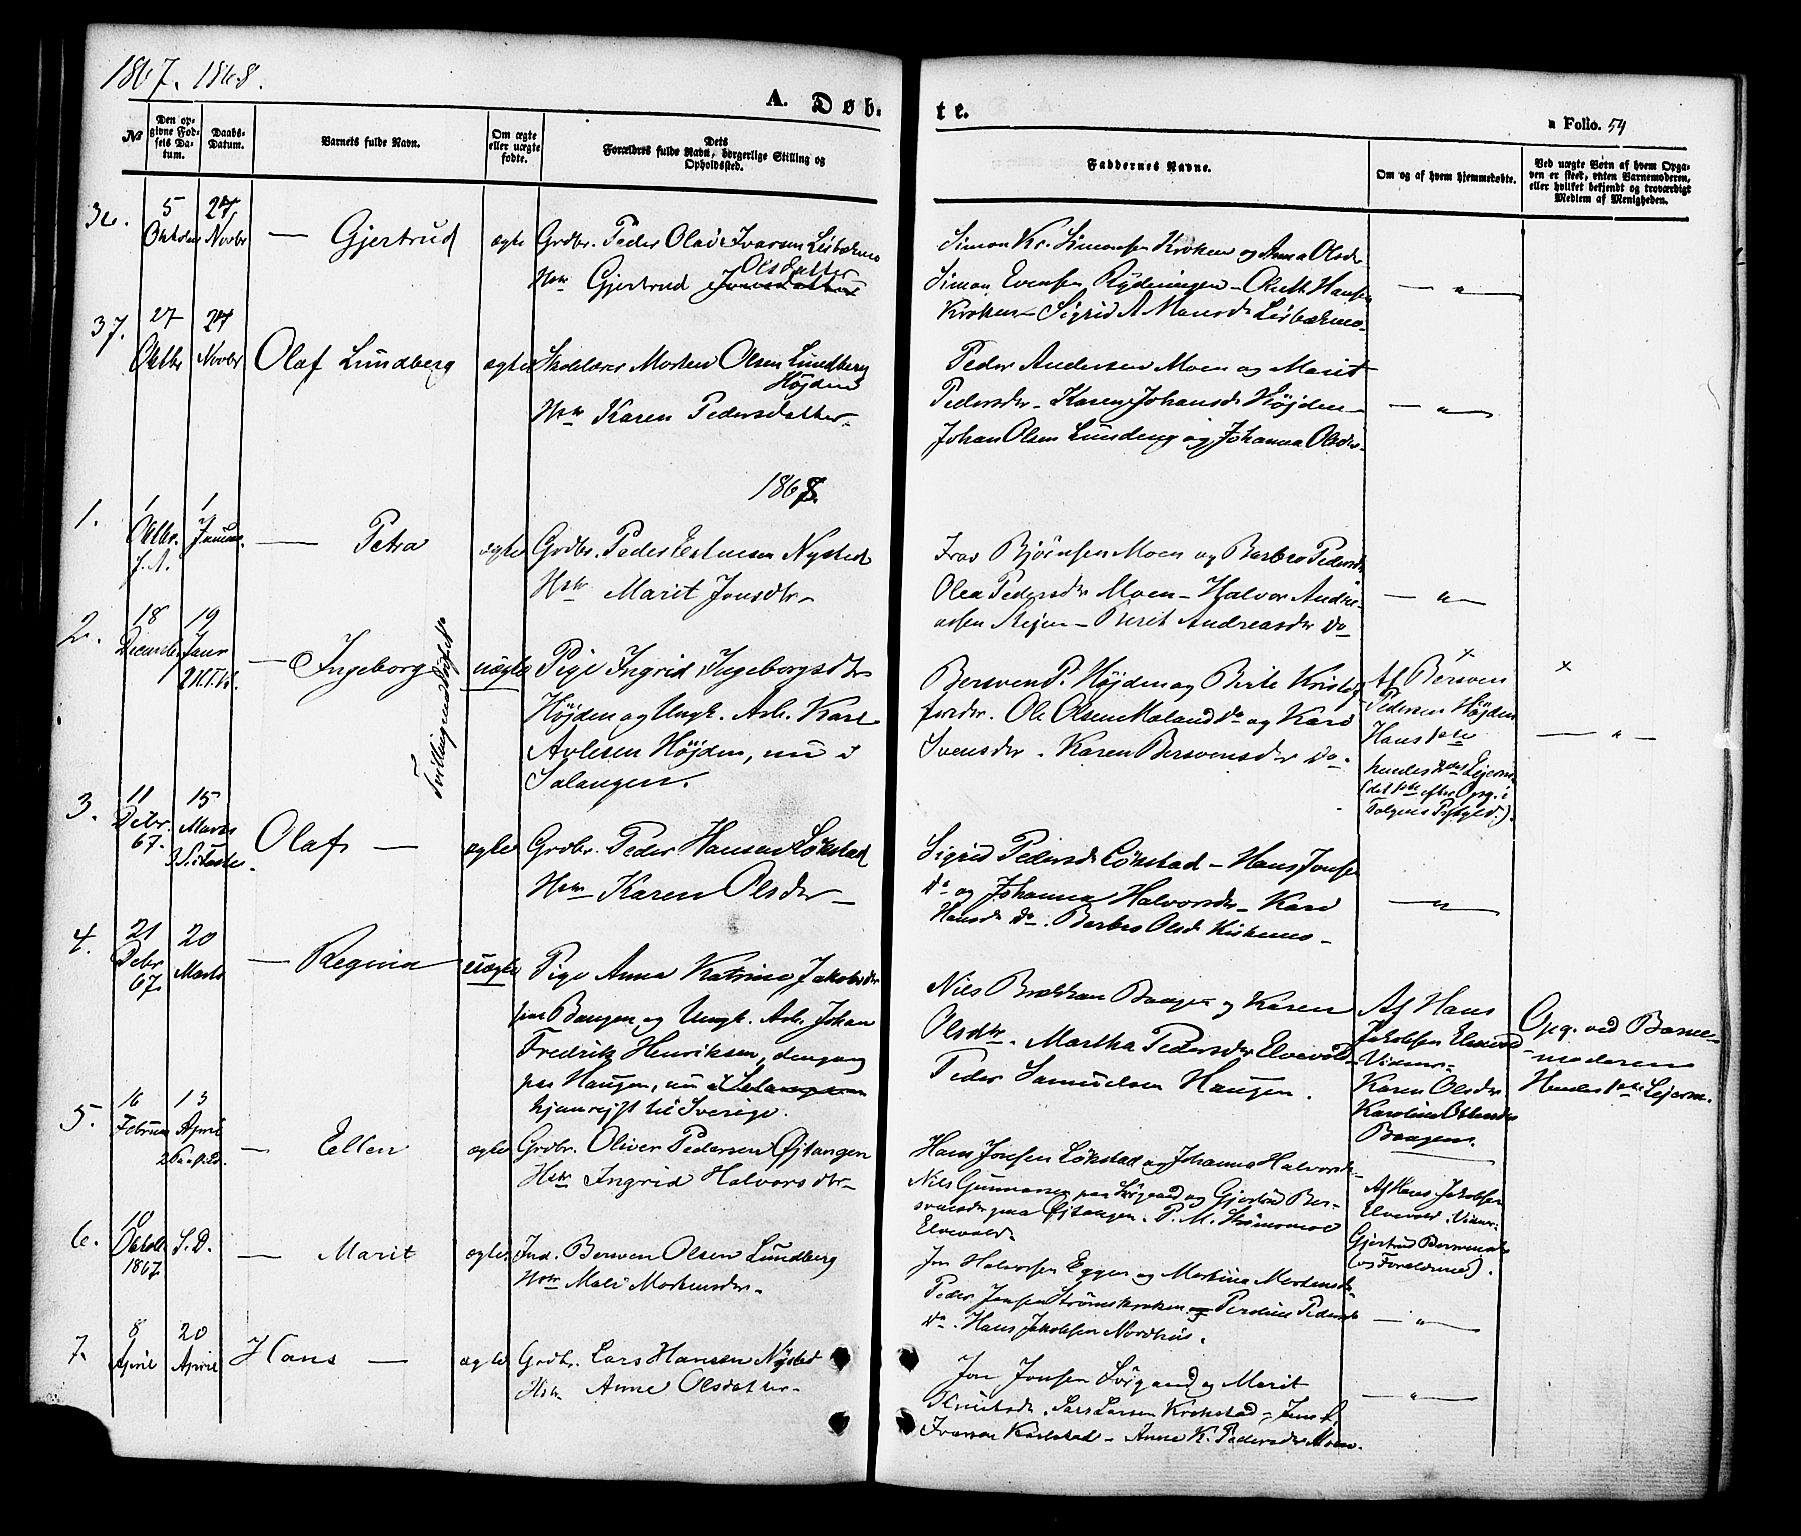 1867. 1868.
A. Døb-
te.
Folio. 54
No
Den op-
givne Fød-
sels Da-
tum.
Daabs-
Datum.
Barnets fulde Navn.
Om ægte
eller uægte
fødte.
Dets
Forældres fulde Navn, borgerlige Stilling og
Opholdssted.
Faddernes Navne.
Om og af hvem hjemmedøbte.
Ved uægte Børn af hvem Opga-
ven er skeet, enten Barnemoderen,
eller hvilket bekjendt og troværdigt
Medlem af Menigheden.
36.
5
Oktober
24
Novbr
— Gjertrud
ægte
Grdbr. Peder Olai Ivarsen
Olsdatter
Hstr Gjertrud
Simon Kr. Simonsen Kroken og Anna Olsdr
Simon Evensen Rydningen - Hansen
Kroken - Sigrid A Monsdr
— " —
37.
27
Oktbr
24
Novbr
Olaf Lundberg
ægte
Skolelærer Morten Olsen Lundberg
Højden
Hstr Karen Pedersdatter -
Peder Andersen Moen og Marit
Pedersdr - Karen Johansdr Højden -
Johan Olsen og Johanna Olsdr -
— " —
1868.
1.
1
Oktbr.
f. A.
1
Januar
— Petra
ægte
Grdbr. Peder Estensen Nysted
Hstr Marit Jonsdr -
Bjørnsen Moen og Barbro Pedersdr
Olea Pedersdr Moen - Halvor Andre-
assen - Berit Andreasdr Do
— " —
2.
18
Decembr
19
Janr
— Ingeborg
Tvillingmoder
uægte
Pige Ingrid Ingeborgsdr
Højden og Ungk. Arb. Karl
Højden, nu i
Salangen.
Bersven P. Højden og Berte Kristof-
fersdr. Ole Olsen Moland Do og Kari
Svensdr. Karen Bersvensdr Do.
Af Bersven
Pedersen Højden
Hans 1ste
hendes 2det Lejerm.
(det 1ste efter Opg. i
×
— " —
3.
11
Decbr.
67.
15
Marts
Olaf —
ægte
Grdbr. Peder Hansen Løkstad
Hstr Karen Olsdr -
Sigrid Pedersdr Løkstad - Hans Jonsen
Do og Johanna Halvorsdr - Kari
Hansdr Do. Barbro Olsdr
— " —
4.
21
Decbr
67.
20
Marts
— Regina
uægte
Pige Anna Katrine Jakobsdr
paa Bangen og Ungk. Arb. Johan
Fredrik Henriksen, dengang
paa Haugen, nu i Salangen
hjemrejst til Sverige.
Nils Brækkan og Karen
Olsdtr. Martha Pedersdr Elvevold -
Peder Samuelsen Haugen.
Af Hans
Jakobsen Elvevold
Vidner
Karen Olsdr
Karoline
Opg. ved Barne-
moderen
Hendes 1ste Lejerm.
5.
16
Februar
13
April
— Ellen
ægte
Grdbr. Oliver Pedersen Øjtangen
Hstr Ingrid Halvorsdtr -
Hans Jonsen Løkstad og Johanna Halvorsdr
Nils Gunnarsen paa Sørgaard og Gjertrud Ber-
svensdr paa Øjtangen. P. M. Strømsmoe
Elvevold.
Af Hans Jakobsen
Elvevold. Vidner
Gjertrud Bersvensdr
(og Forældrene).
6.
10
Oktob
1867.
S. D.
— Marit
ægte
Ind. Bersven Olsen Lundberg
Hstr Mali Mortensdr -
Jon Halvorsen Eggen og Martina Mortensdr
Peder Jensen Strømskroken og Pedersdr
Do. Hans Jakobsen Nordhus.
— " —
7.
8
April
20
April
Hans —
ægte
Grdbr. Lars Hansen Nysted
Hstr Anne Olsdatter -
Jon Jonsen Sørgaard og Marit
Knutsdr. Lars Larsen Krokstad - Jens
Ivarsen Karlstad - Anne K. Pedersdr Moen.
— " —